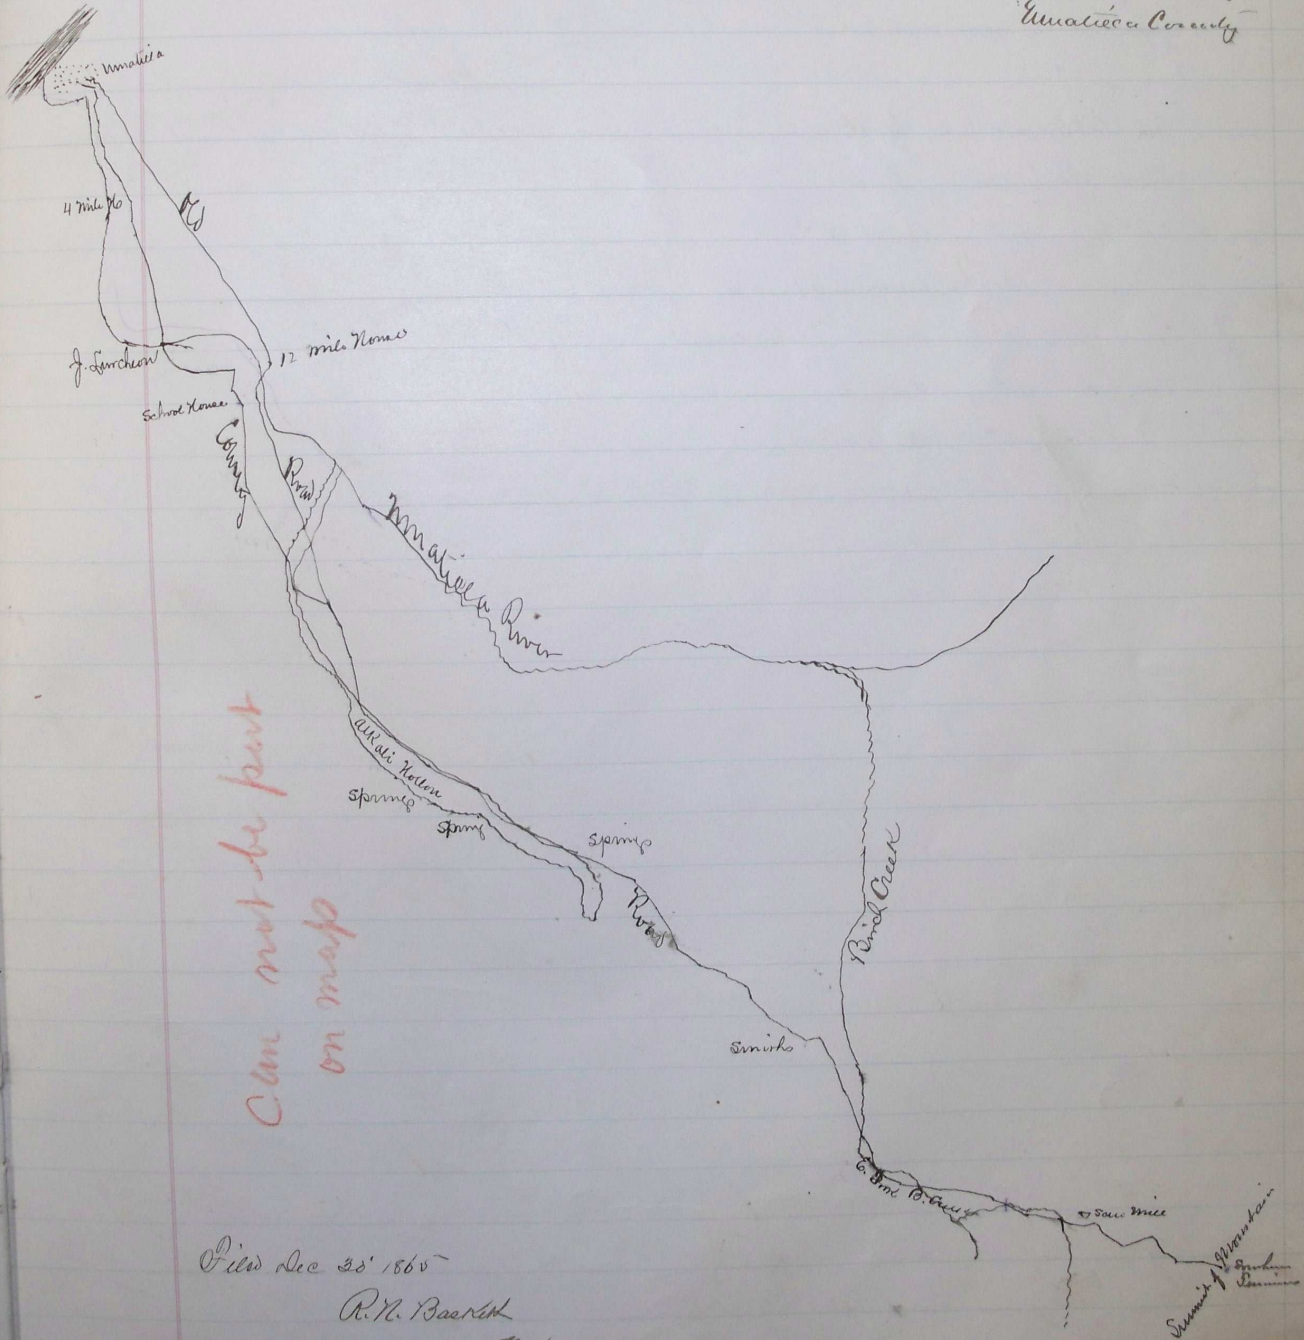 Umatilla County
Umatilla
4 Mile H
Old
J. Luncheon
12 Mile House
School House
County
Road
Umatilla River
Alkali Hollow
Springs
Spring
Spring
Road
Birch Creek
Smiths
E. Fork B. Creek
Saw Mill
Summit of Mountain
Can not be put
on map
Filed Dec 25 1865
R. N. Baskett